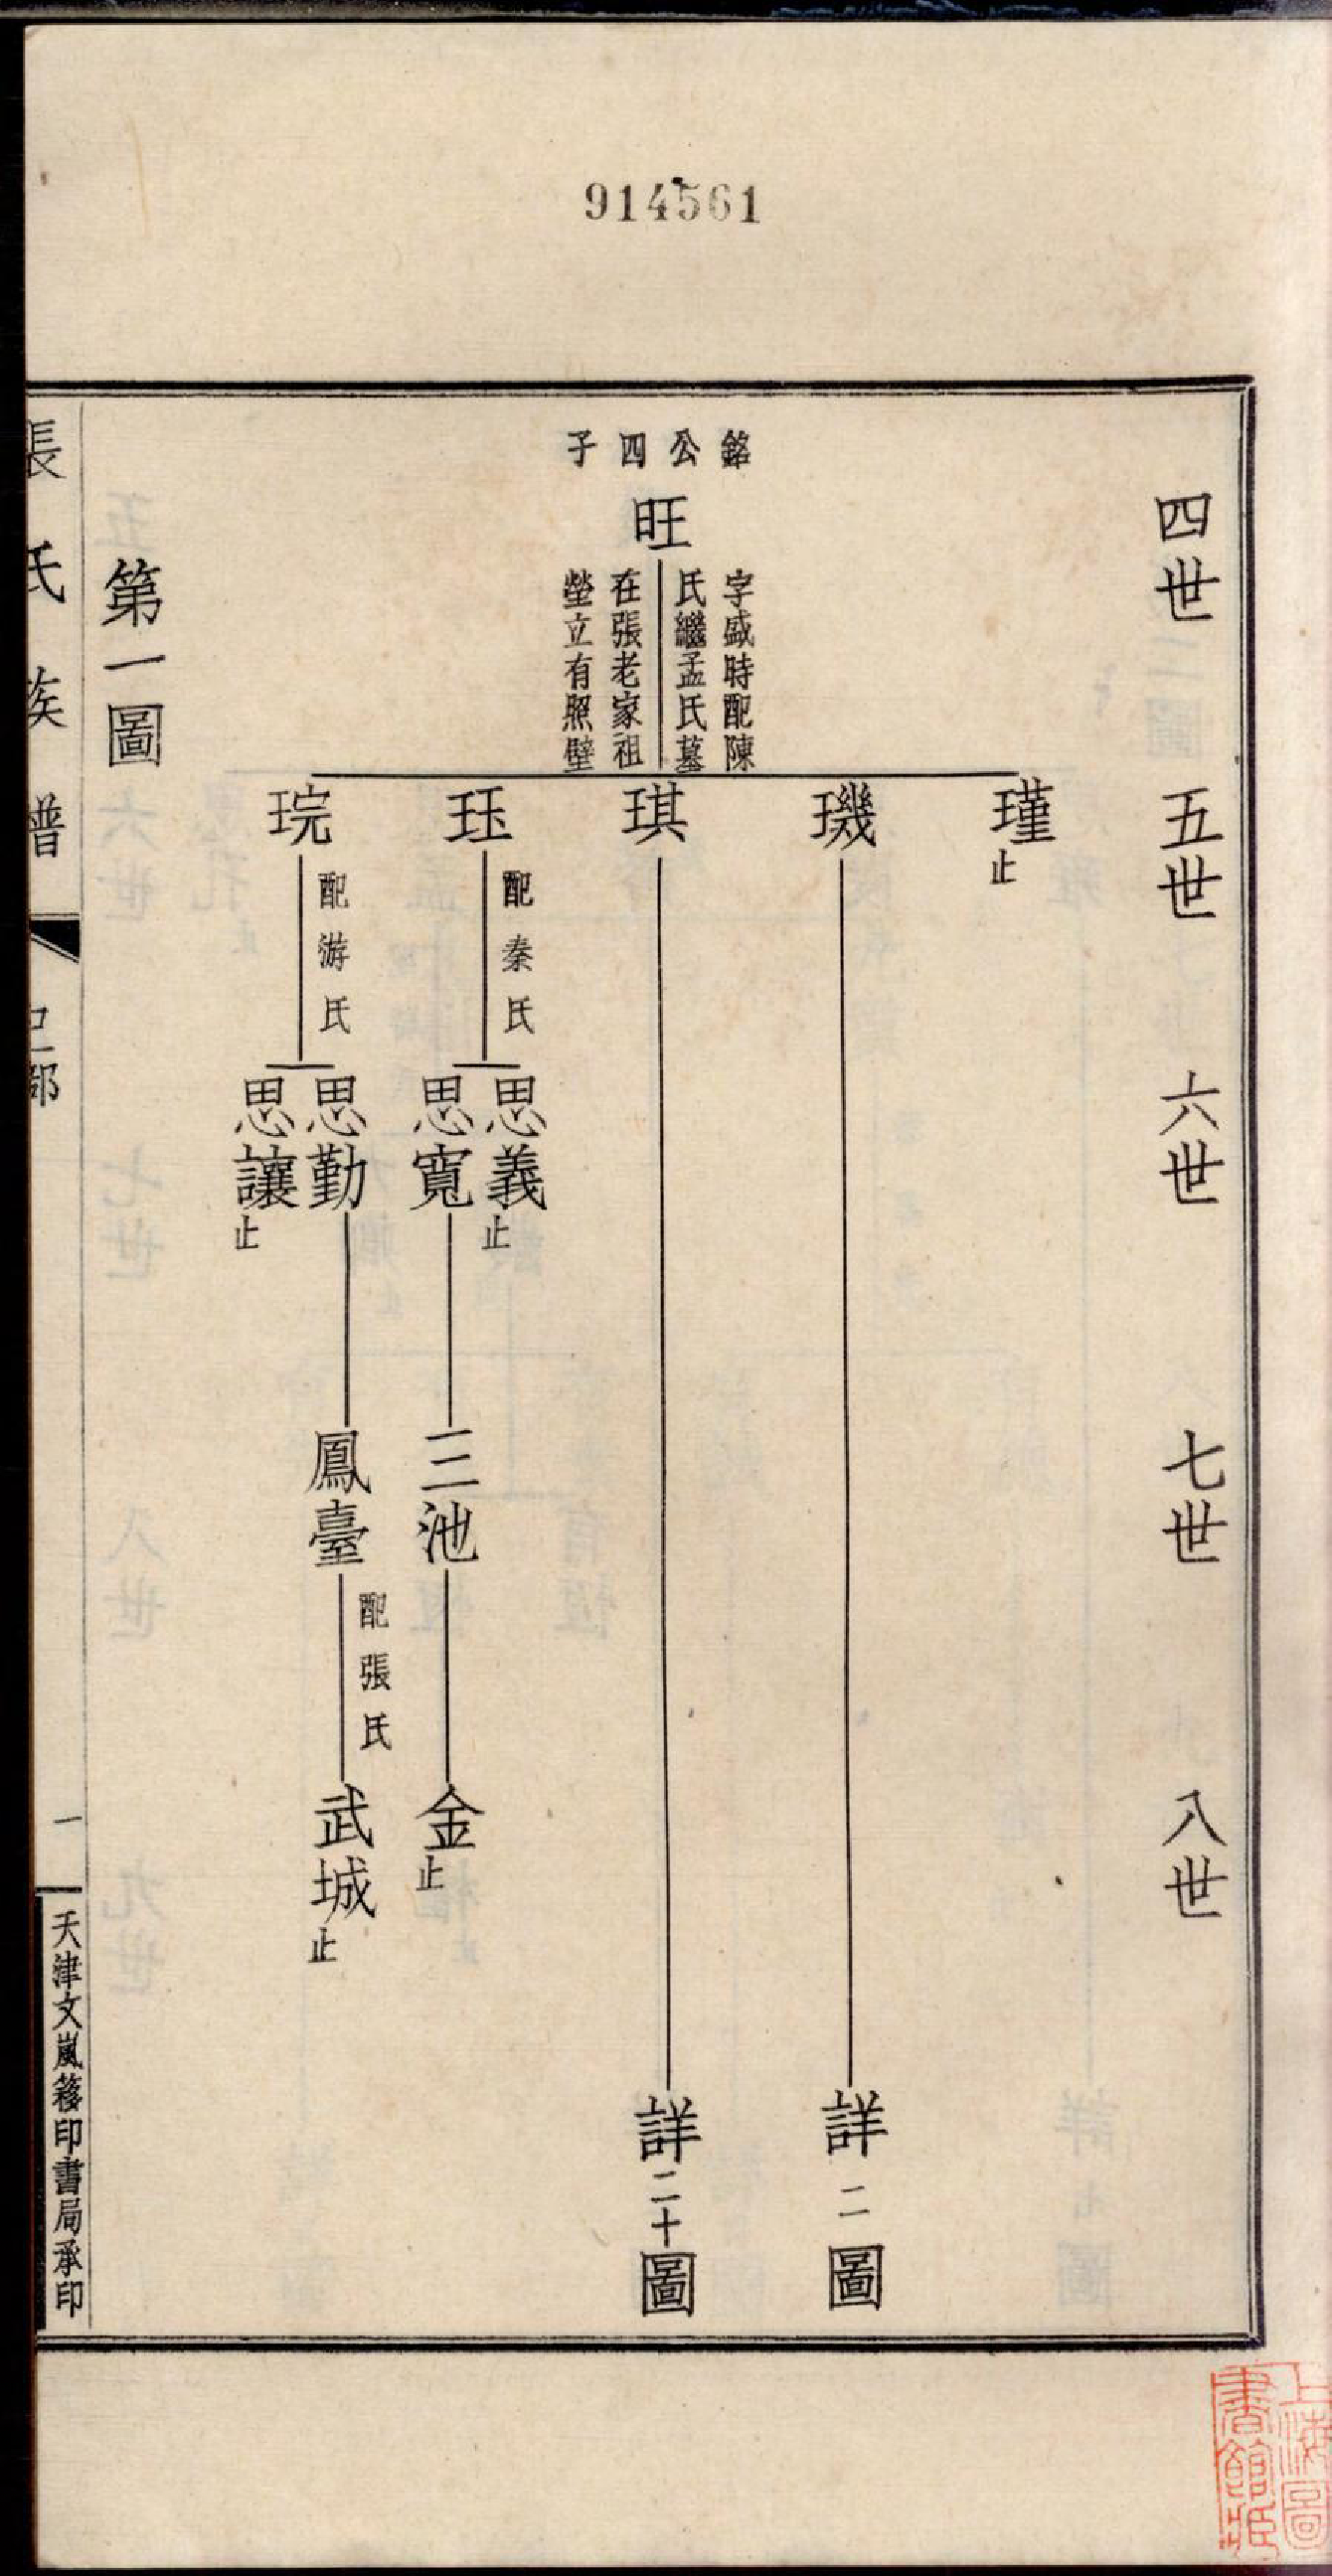 914561
四世
五世
六世
七世
八世
銘公四子
旺
字盛時配陳
氏繼孟氏墓
在張老家祖
塋立有照壁
瑾止
璣
詳二圖
琪
詳二十圖
珏
配秦氏
思義止
思寬
三池
金止
琓
配游氏
思勤
鳳臺
配張氏
武城止
思讓止
第一圖
張氏族譜
一
天津文嵐簃印書局承印
上海圖
書館藏